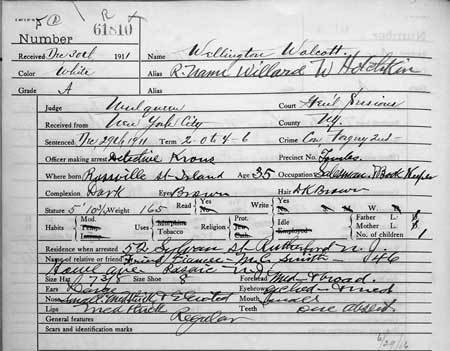 R
61810
Number
Received Dec 30th 1911 Name Wellington Walcott.
Color White Alias R. Name Willard W Hotchkin
Grade A Alias
Judge Court Gen'l Sessions
Received from New York City County N.Y.
Sentenced Dec 29th 1911 Term 2-0 to 4-6 Crime Con Forgery 2nd
Officer making arrest Detective Precinct No. Tombs
Where born Rossville St Island Age 35 Occupation Salesman Book Keeper
Complexion Dark Eyes Brown Hair DK Brown
Stature 5' 10 3/4 Weight 165 Read Yes No Write Yes No
Habits Mod. Temp. Intemp. Uses Morphine Tobacco Religion Prot. Jew. Cath. Idle Employed Father L. Mother L. No. of children 1
Residence when arrested 52 Sylvan St Rutherford N.J.
Name of relative or friend Friend Fiancee Smith 46
ave Passaic N.J.
Size Hat 7 3/8 Size Shoe 8 Forehead Med Broad.
Ears Large Eyebrows
Nose Elevated Mouth Small
Lips Med Thick Teeth One absent
General features Regular
Scars and identification marks
6/29/16